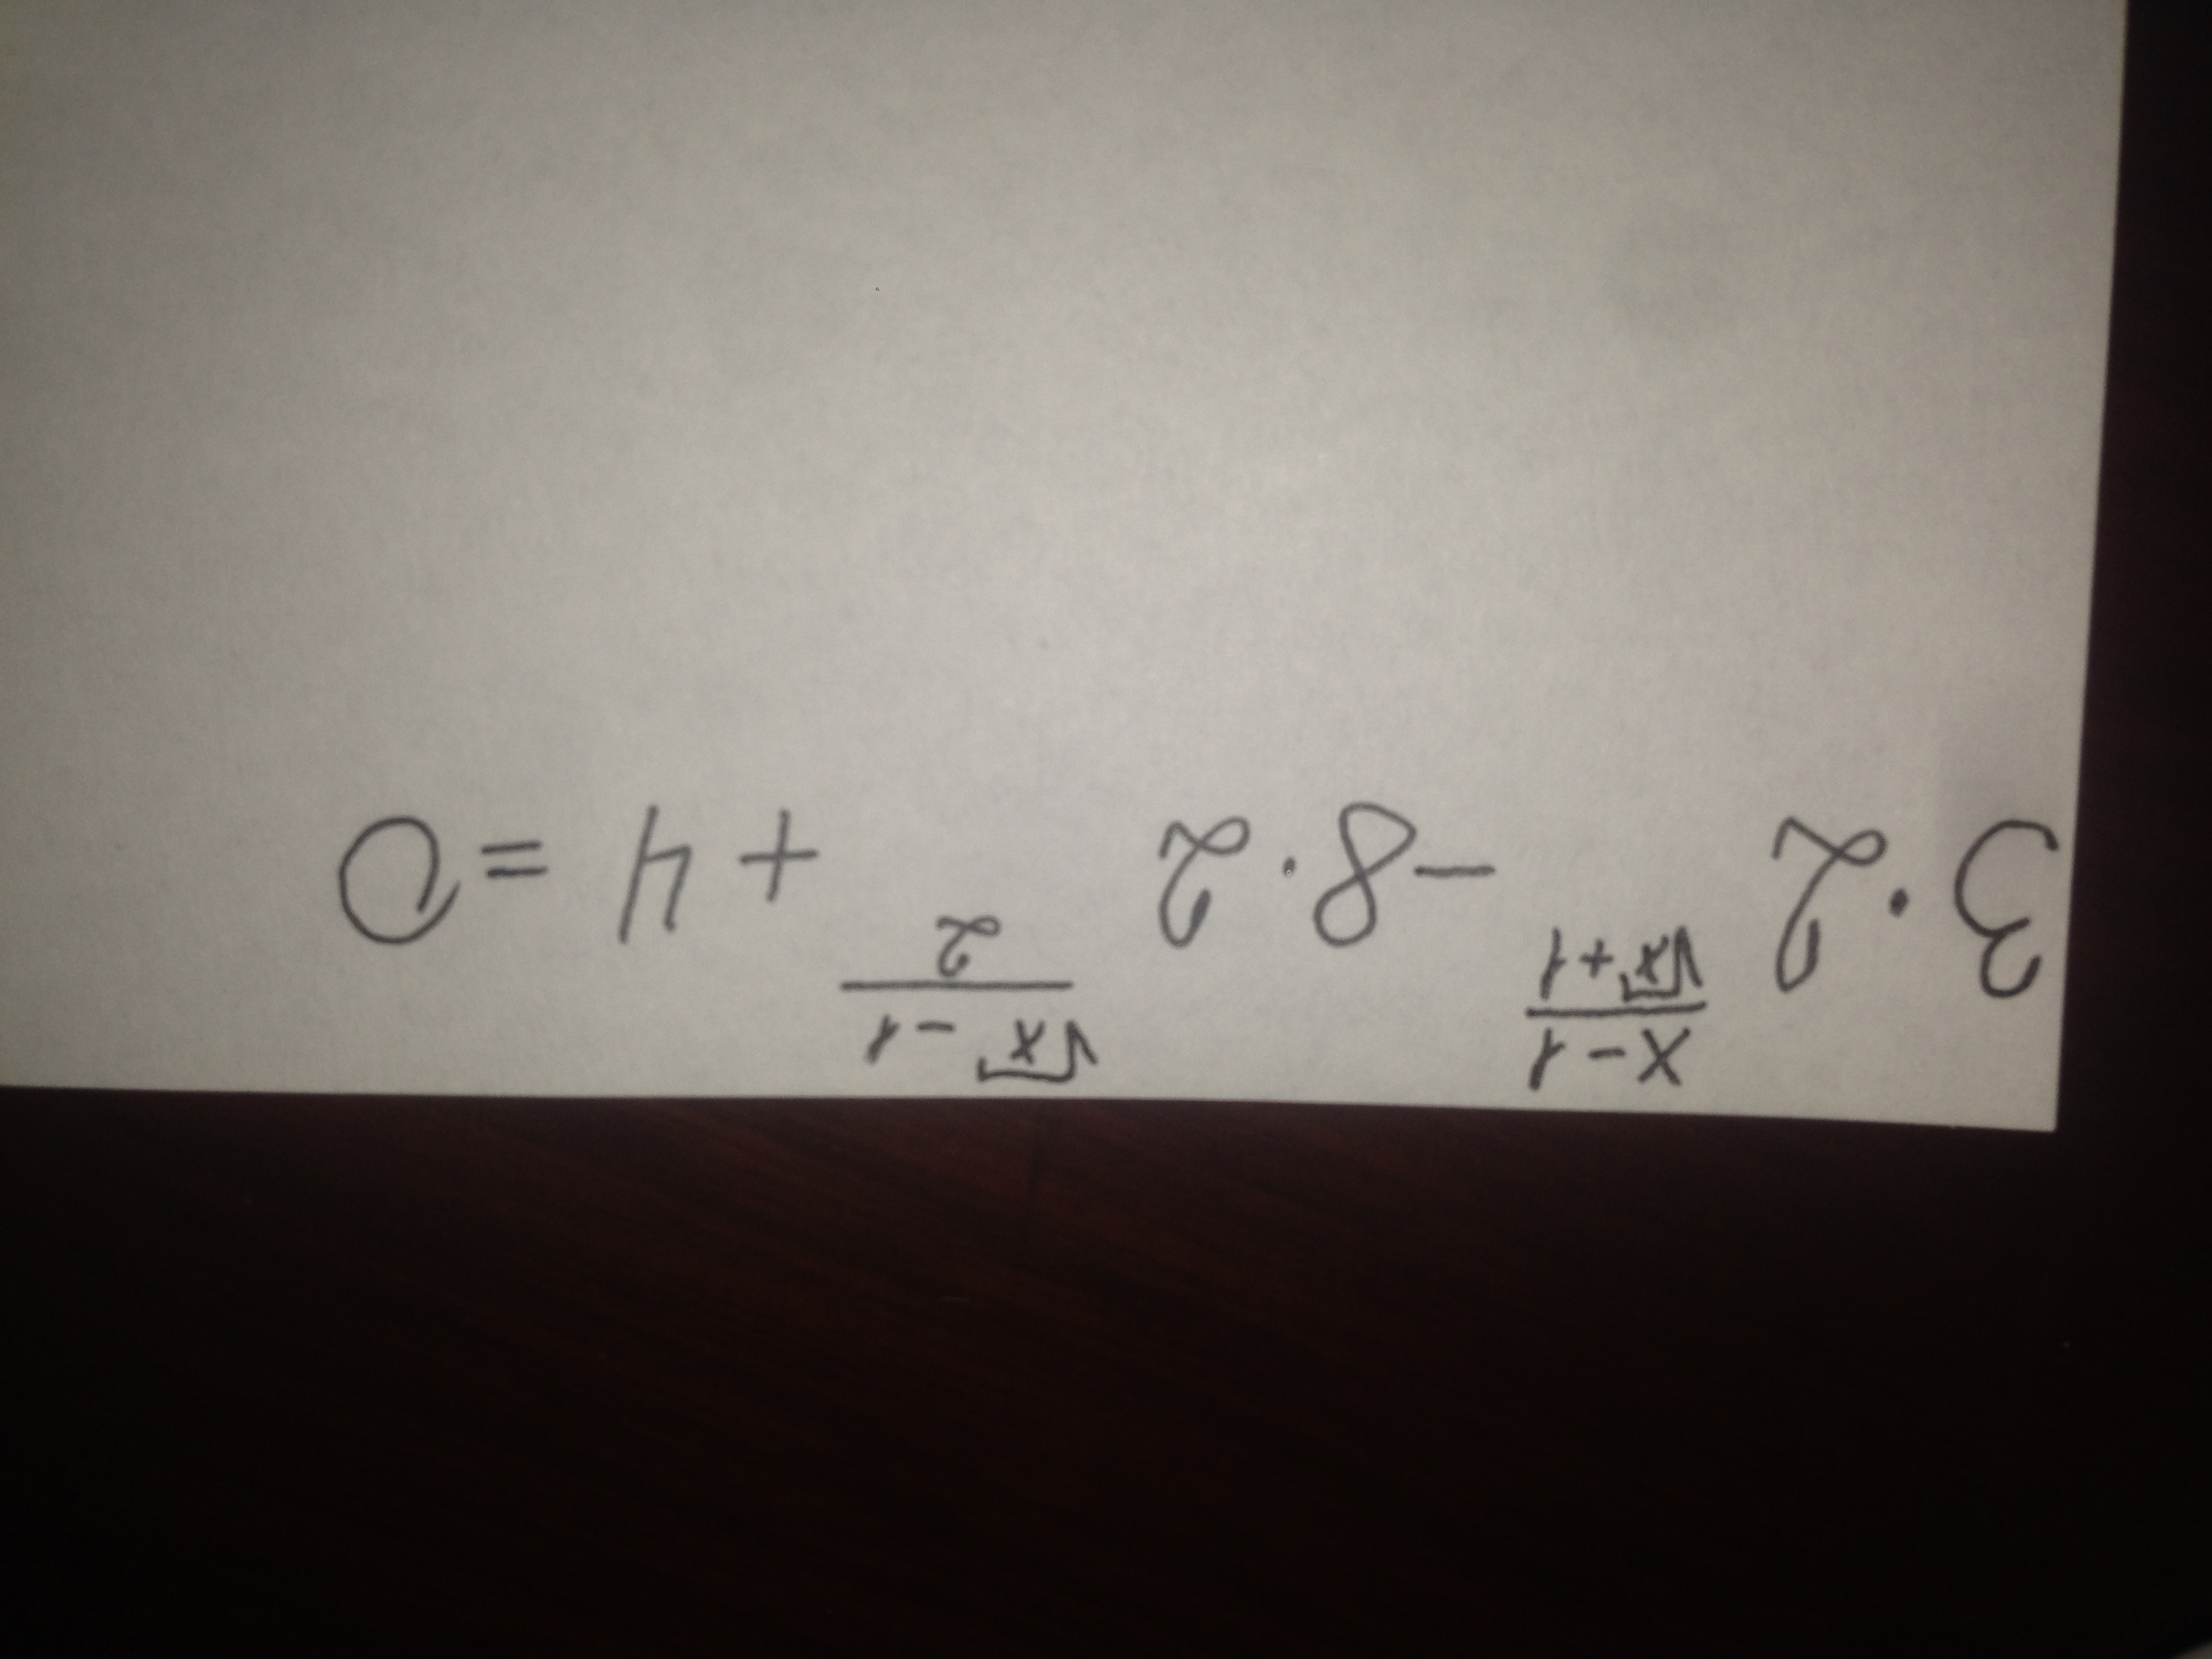 3·2^{\frac{x-1}{\sqrt{x}+1}} - 8·2^{\frac{\sqrt{x}-1}{2}} + 4 = 0